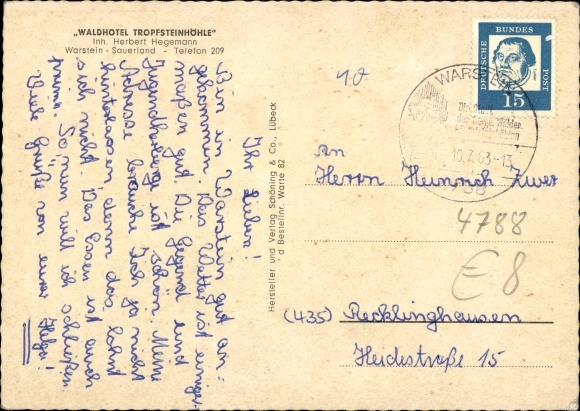 „WALDHOTEL TROPFSTEINHÖHLE"
Inh. Herbert Hegemann
Warstein - Sauerland - Telefon 209
Ihr Lieben!
Bin in Warstein gut an-
gekommen. Das Wetter ist einiger-
maßen gut. Die Gegend und
Jugendherberge ist schön. Meine
Adresse brauche ich ja nicht
hinterlassen, denn das lohnt
sich nicht. Das Essen ist auch
prima. So nun will ich schließen.
Viele Grüße von eurer
Helga!
Hersteller und Verlag Schöning & Co., Lübeck
d Bestellnr. Warte 82
DEUTSCHE BUNDES POST
15
WARSTEIN
10.7.63-13
An
Herrn Heinrich
4788
€ 8
(435) Recklinghausen
Heidestraße 15